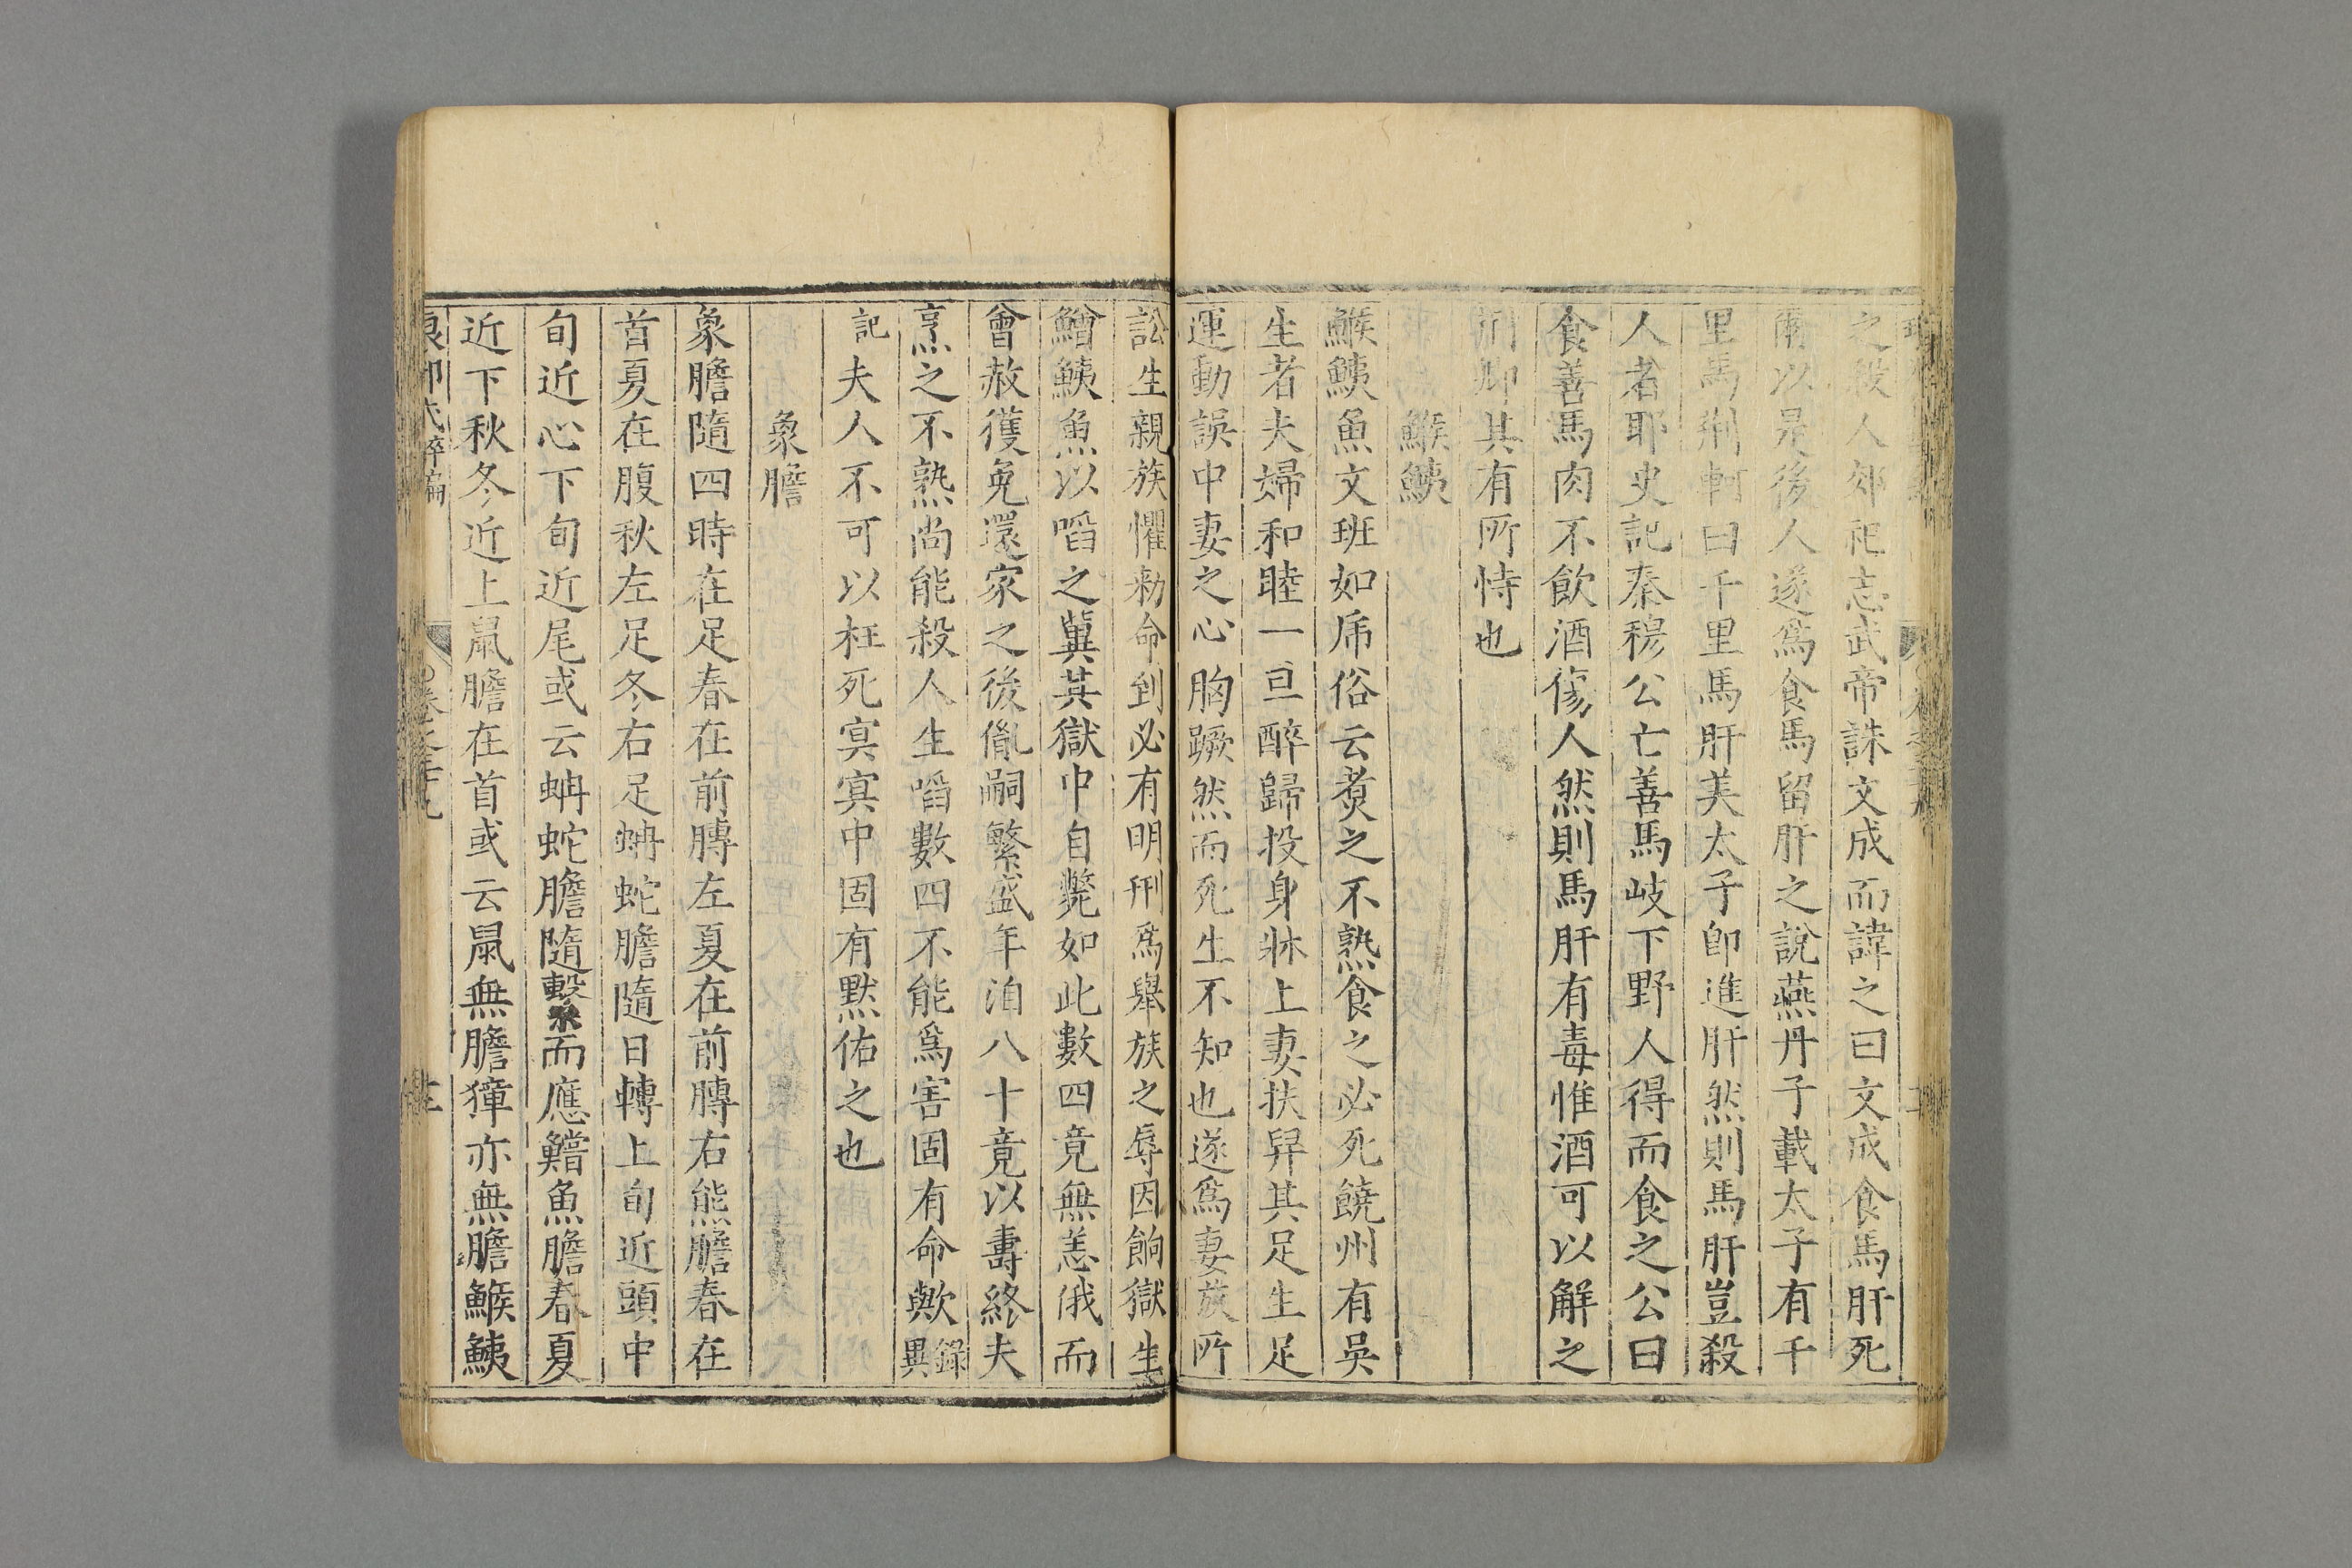 之殺人郊祀志武帝誅文成而諱之曰文成食馬肝死
爾以是後人遂爲食馬留肝之說燕丹子載太子有千
里馬荆軻曰千里馬肝美太子卽進肝然則馬肝豈殺
人者耶史記秦穆公亡善馬岐下野人得而食之公曰
食善馬肉不飲酒傷人然則馬肝有毒惟酒可以解之
荆卿其有所恃也
鯸鮧
鯸鮧魚文班如虎俗云煑之不熟食之必死饒州有吳
生者夫婦和睦一旦醉歸投身牀上妻扶舁其足生足
運動誤中妻之心胸蹶然而死生不知也遂爲妻族所
訟生親族懼勑命到必有明刑爲舉族之辱因餉獄生
鱠鮧魚以啗之冀其獄中自斃如此數四竟無恙俄而
會赦獲免還家之後胤嗣繁盛年洎八十竟以壽終夫
烹之不熟尚能殺人生啗數四不能爲害固有命歟錄異
記夫人不可以枉死冥冥中固有默佑之也
象膽
象膽隨四時在足春在前膊左夏在前膊右熊膽春在
首夏在腹秋左足冬右足蚺蛇膽隨日轉上旬近頭中
旬近心下旬近尾或云蚺蛇膽隨擊而應鱨魚膽春夏
近下秋冬近上鼠膽在首或云鼠無膽獐亦無膽鯸鮧
琅邪代醉編
卷之三十九